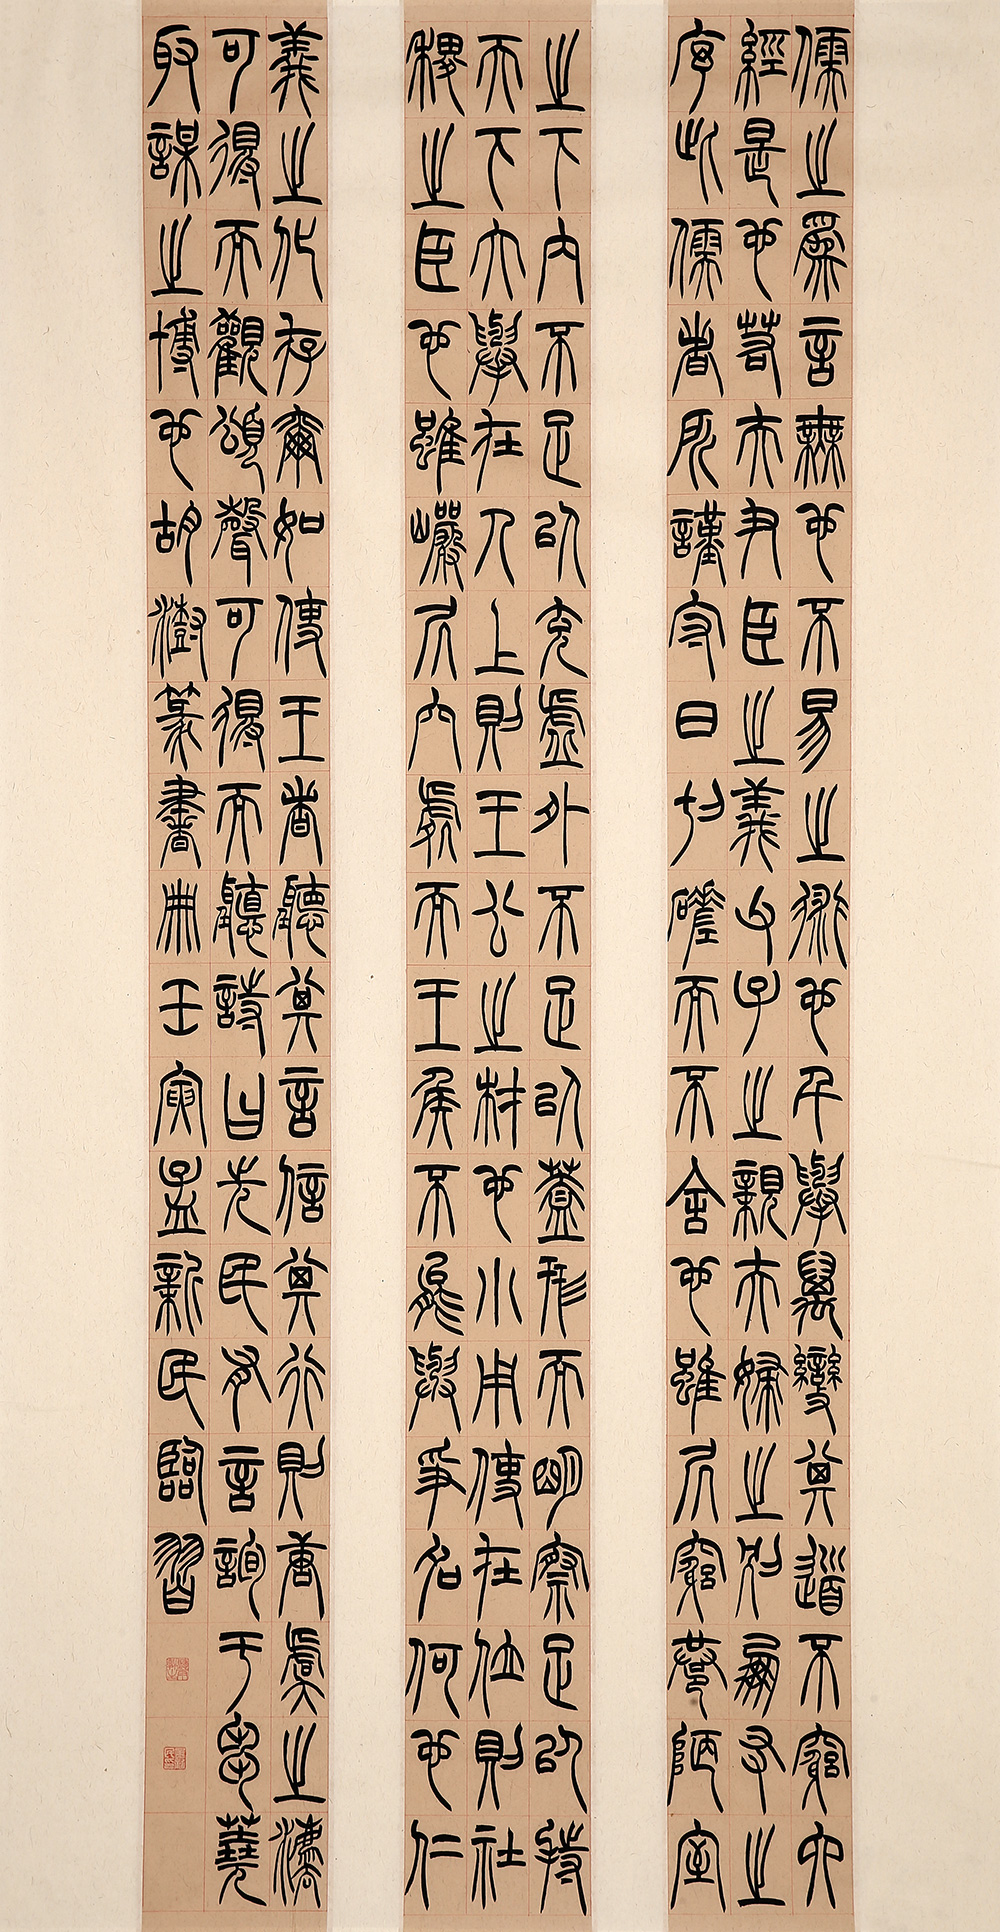 儒之為言無也不易之術也千舉萬變其道不窮六
經是也若夫君臣之義父子之親夫婦之別朋友之
序此儒者所謹守日切磋而不舍也雖居窮巷陋室
之下內不足以充虛外不足以蓋形而明察足以持
天下大舉在人上則王公之材也小用使在位則社
稷之臣也雖巖居穴處而王侯不能與爭名何也仁
義之化存爾如使王者聽其言信其行則唐虞之灋
可得而觀頌聲可得而聽詩曰先民有言詢于芻蕘
取謀之博也胡澍篆書冊壬寅孟新民臨習